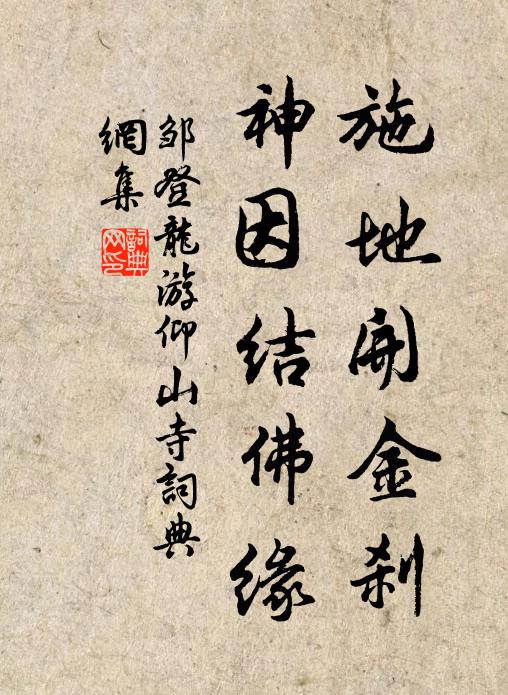 施地開金刹
神因结佛缘
邹登龍游仰山寺詞典
網集
詞典
网印